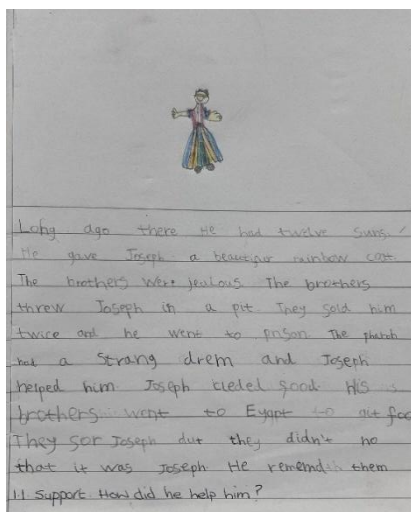 Long ago there He had twelve suns.
He gave Joseph a beautifur rainbow coat.
The brothers were jealous The brothers
threw Joseph in a pit. They sold him
twice and he went to prison The pharoh
had a strang drem and Joseph
helped him. Joseph good. His
brothers went to Eygpt to
They sor Joseph but they didn't no
that it was Joseph He rememd them
1:1 Support. How did he help him?